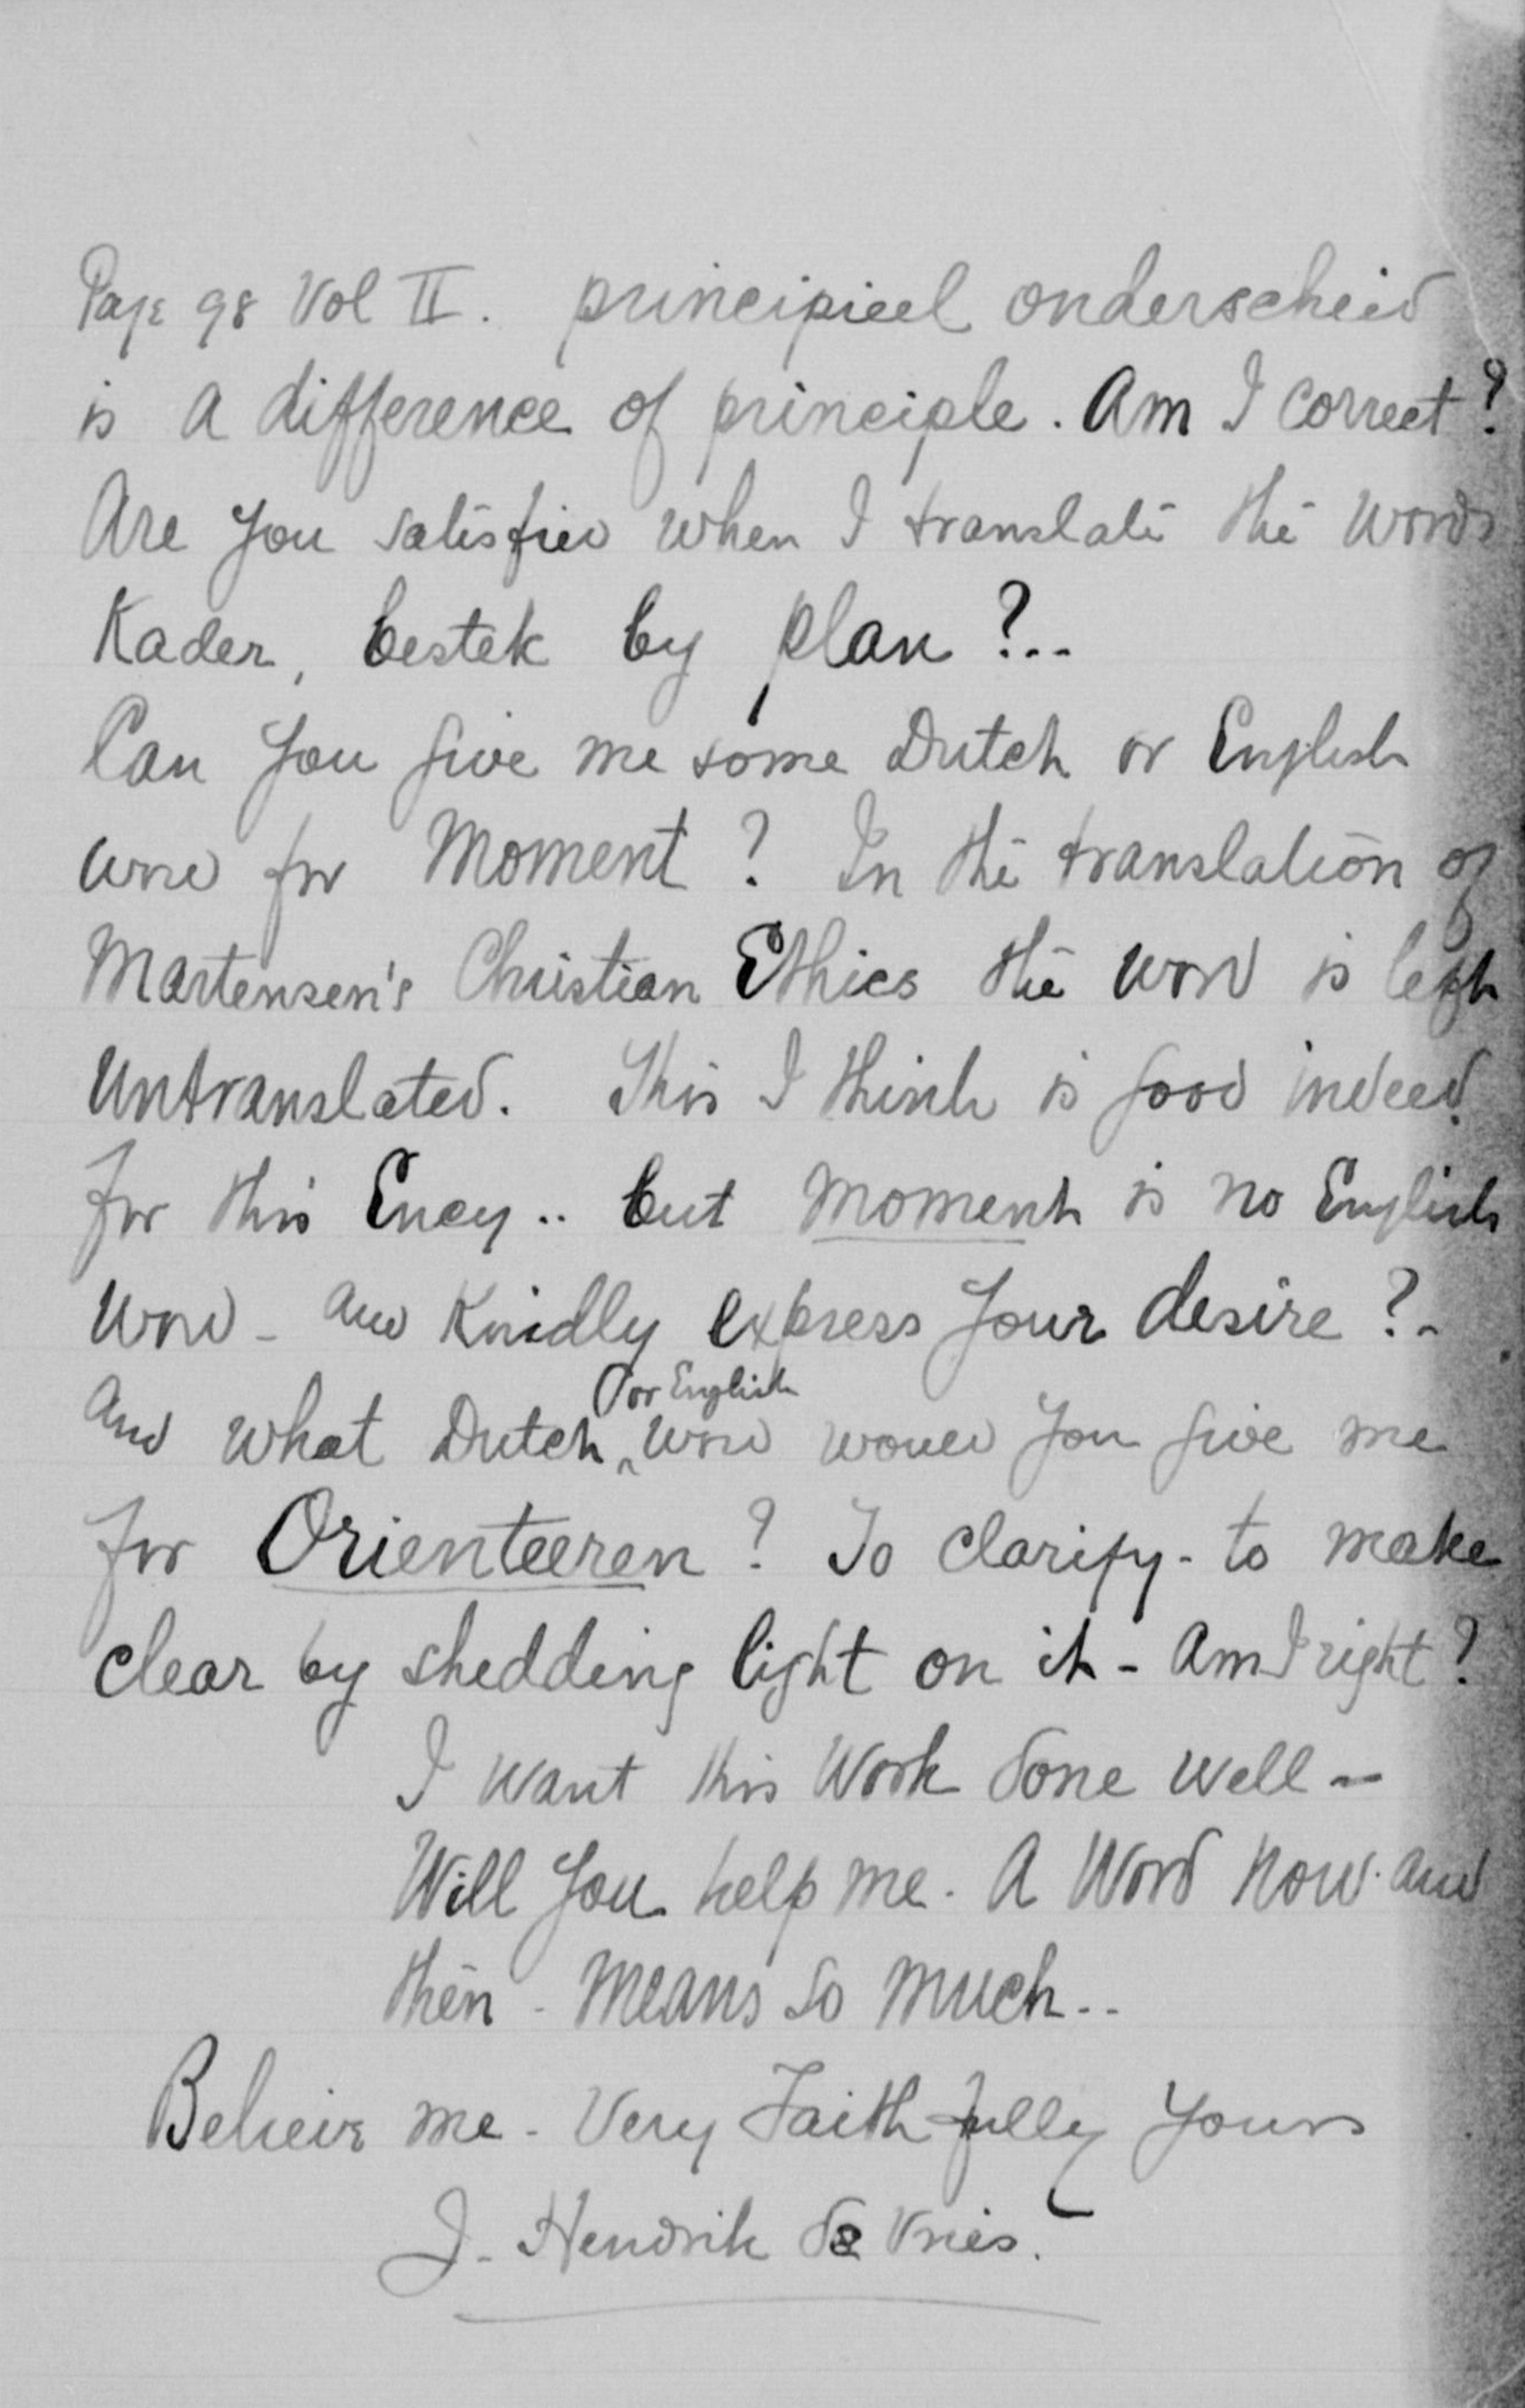 Page 98 Vol II. principieel onderscheid
is a difference of principle. Am I correct?
Are you satisfied when I translate the words
Kader, bestek by plan?..
Can you give me some Dutch or English
word for Moment? In the translation of
Martensen's Christian Ethics the word is left
untranslated. This I think is good indeed
for this Ency.. but moment is no English
word - and kindly express your desire?-
or English
And what Dutch word would you give me
for Orienteeren? To clarify - to make
clear by shedding light on it - Am I right?
I want this work done well -
Will you help me. A word now and
then - means so much..
Believe me - Very Faithfully Yours
J. Hendrik de Vries.